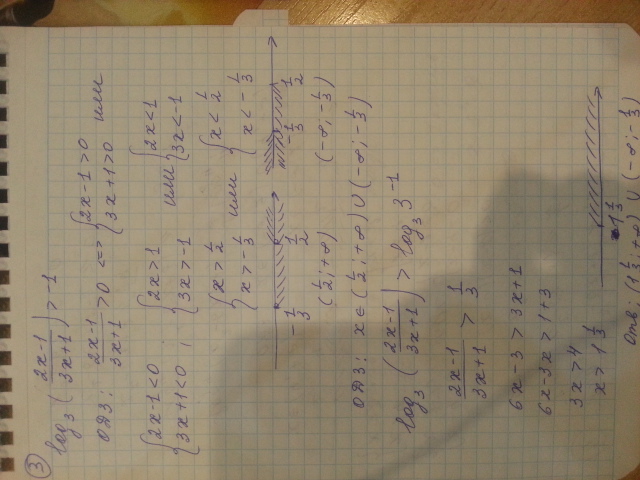 ③
log₃ ( (2x-1)/(3x+1) ) > -1
ОДЗ: (2x-1)/(3x+1) > 0 <=> { 2x-1>0 3x+1>0 или
{ 2x-1<0 3x+1<0 ; { 2x>1 3x>-1 или { 2x<1 3x<-1
{ x>1/2 x>-1/3 или { x<1/2 x<-1/3
-1/3 1/2 -1/3 1/2
(1/2; +∞) (-∞; -1/3)
ОДЗ: x∈(1/2; +∞) ∪ (-∞; -1/3)
log₃ ( (2x-1)/(3x+1) ) > log₃ 3⁻¹
(2x-1)/(3x+1) > 1/3
6x-3 > 3x+1
6x-3x > 1+3
3x>4
x > 1 1/3
1 1/3
Отв: (1 1/3; +∞) ∪ (-∞; -1/3)